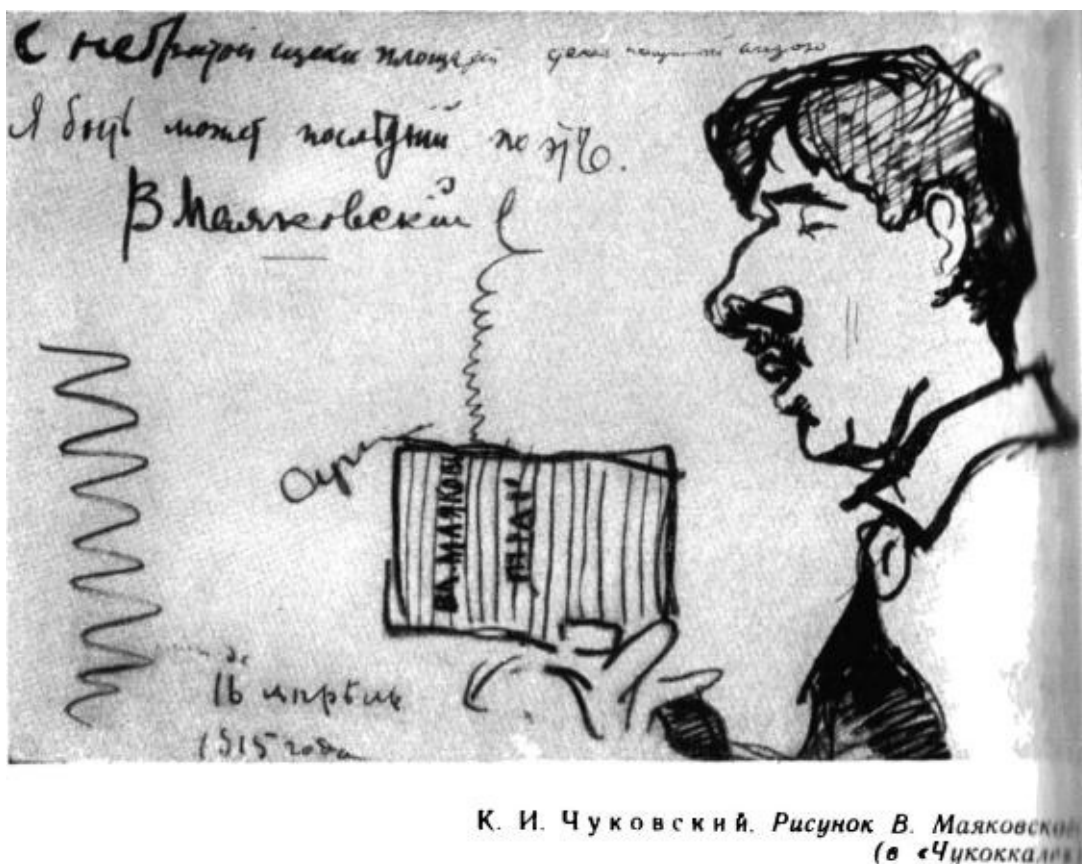 С небритой щеки площадей
Я быть может последний поэтъ.
В Маяковскій
ВЛ. МАЯКОВ
16 апрѣль
1915 года
К. И. Чуковский. Рисунок В. Маяковско
(в «Чукоккале»